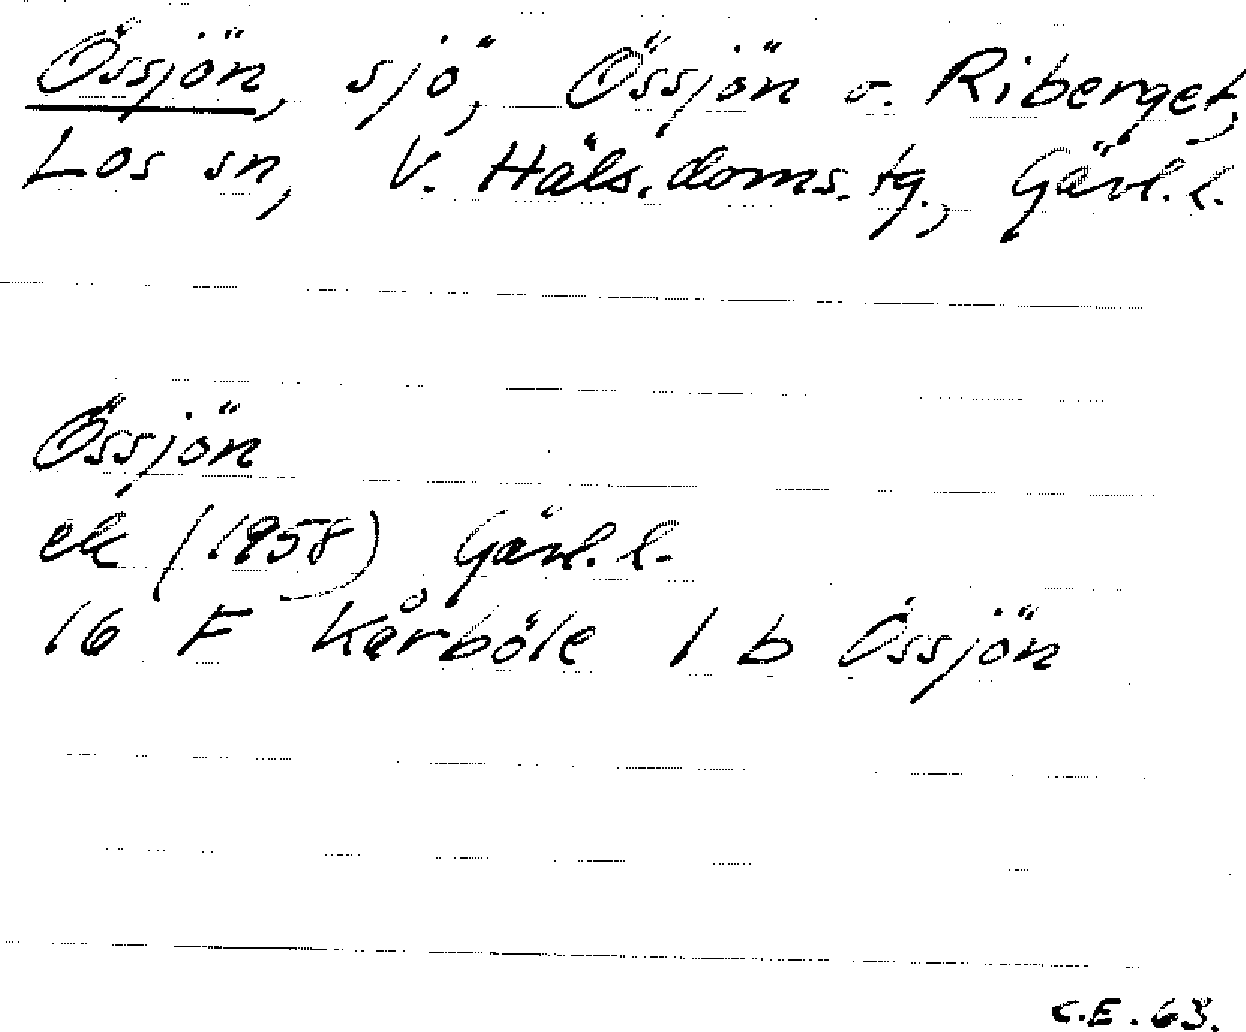 Össjön, sjö, Össjön o. Riberget,
Los sn, V. Häls. doms. tg., Gävl. l.
Össjön
ek (1958) Gävl. l.
16 F Kårböle 1 b Össjön
C.E. 63.